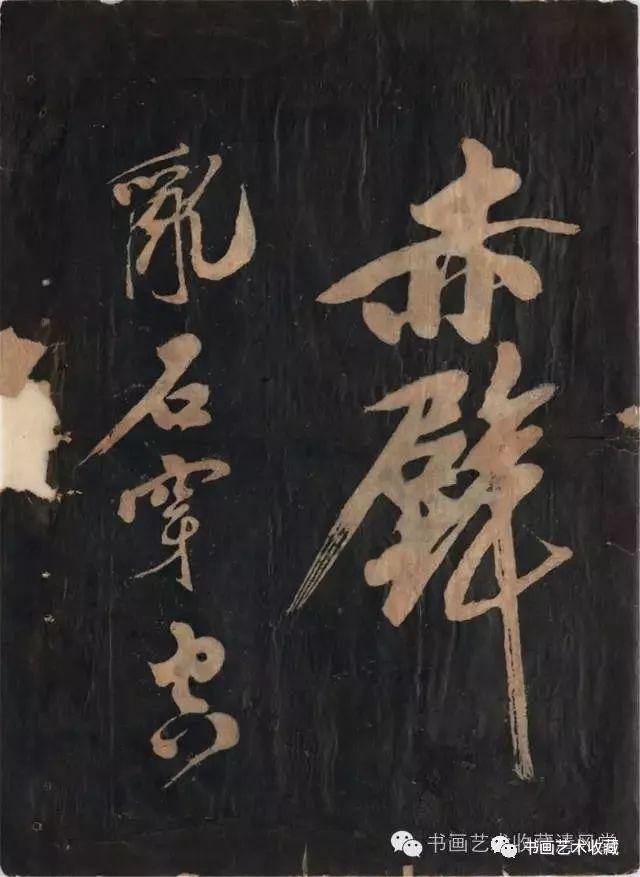 赤壁
亂石穿空
书画艺术收藏清风堂
书画艺术收藏